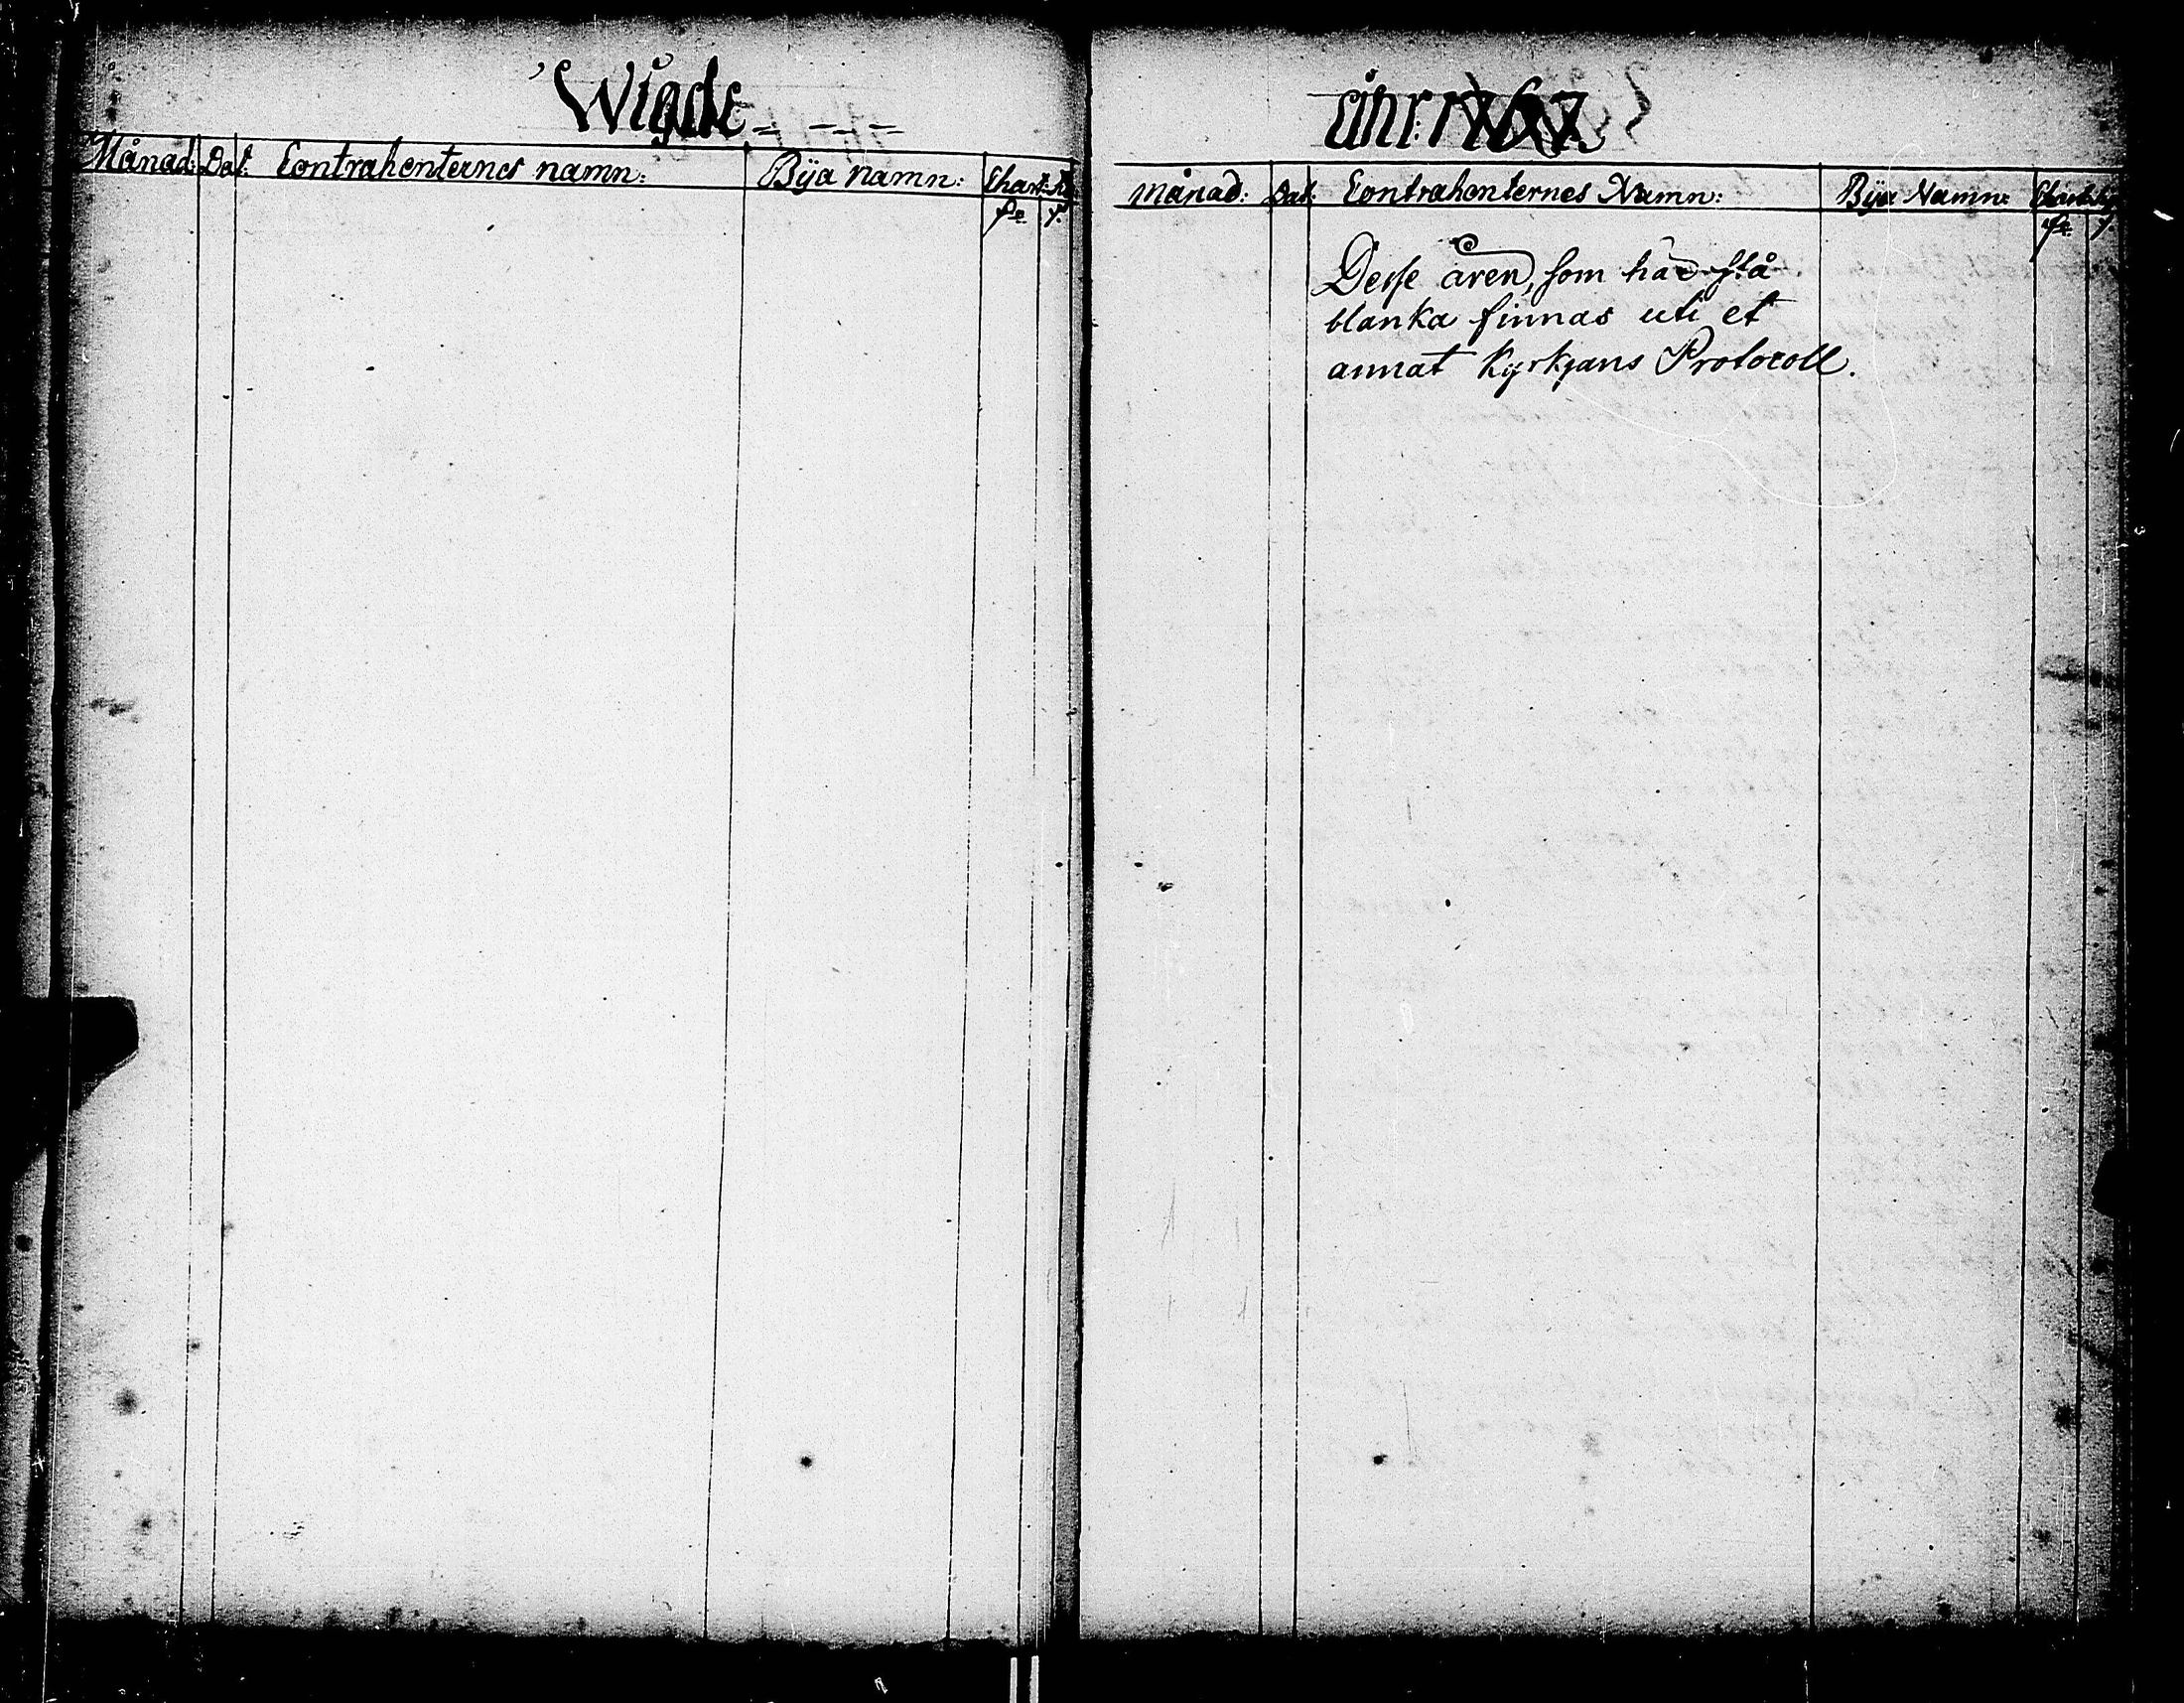 Wigde
Månad: Dat: Contrahenternes namn: Bÿa namn: Chart:
åhr: 1767
Månad: Dat: Contrahenternes Namn: Bÿa Namn:
Desse åren, som här stå
blanka finnas uti et
annat Kyrkjans Protocoll.